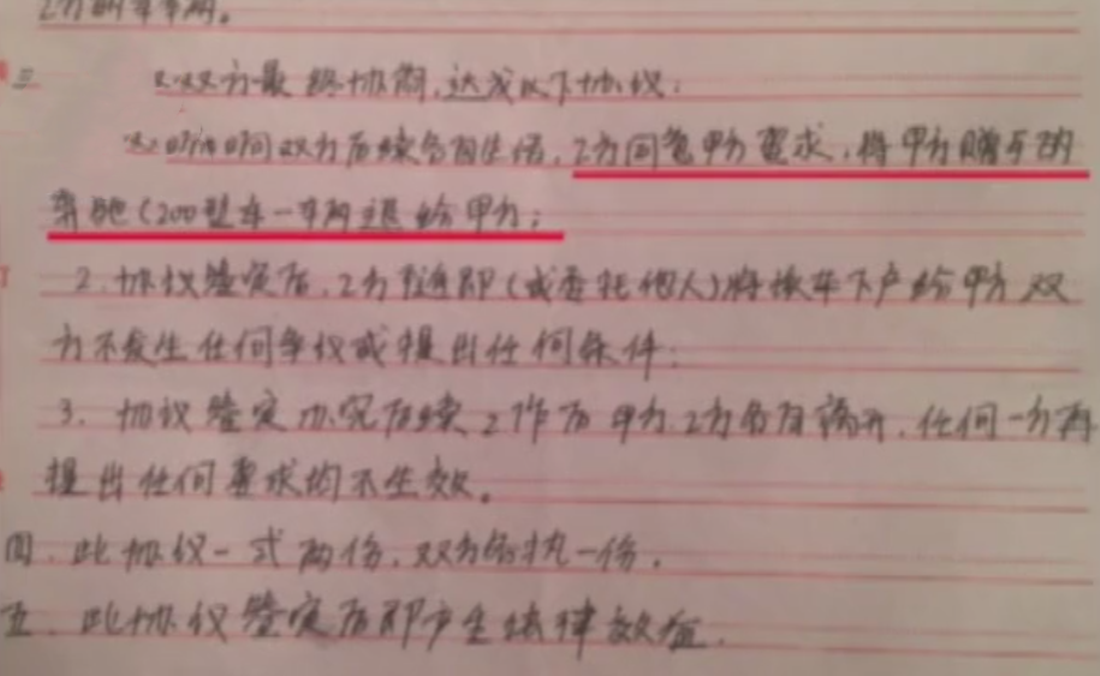 三 双方最终协商,达成以下协议:
双方后续各自生活,乙方同意甲方要求,将甲方赠予的
奔驰C200型车一辆退给甲方;
2.协议鉴定后,乙方随即(或委托他人)将该车下户给甲方双
方不发生任何争议或提出任何条件;
3.协议鉴定办完后续工作后甲方乙方各自离开,任何一方再
提出任何要求均不生效。
四.此协议一式两份,双方各执一份.
五.此协议鉴定后即产生法律效益.